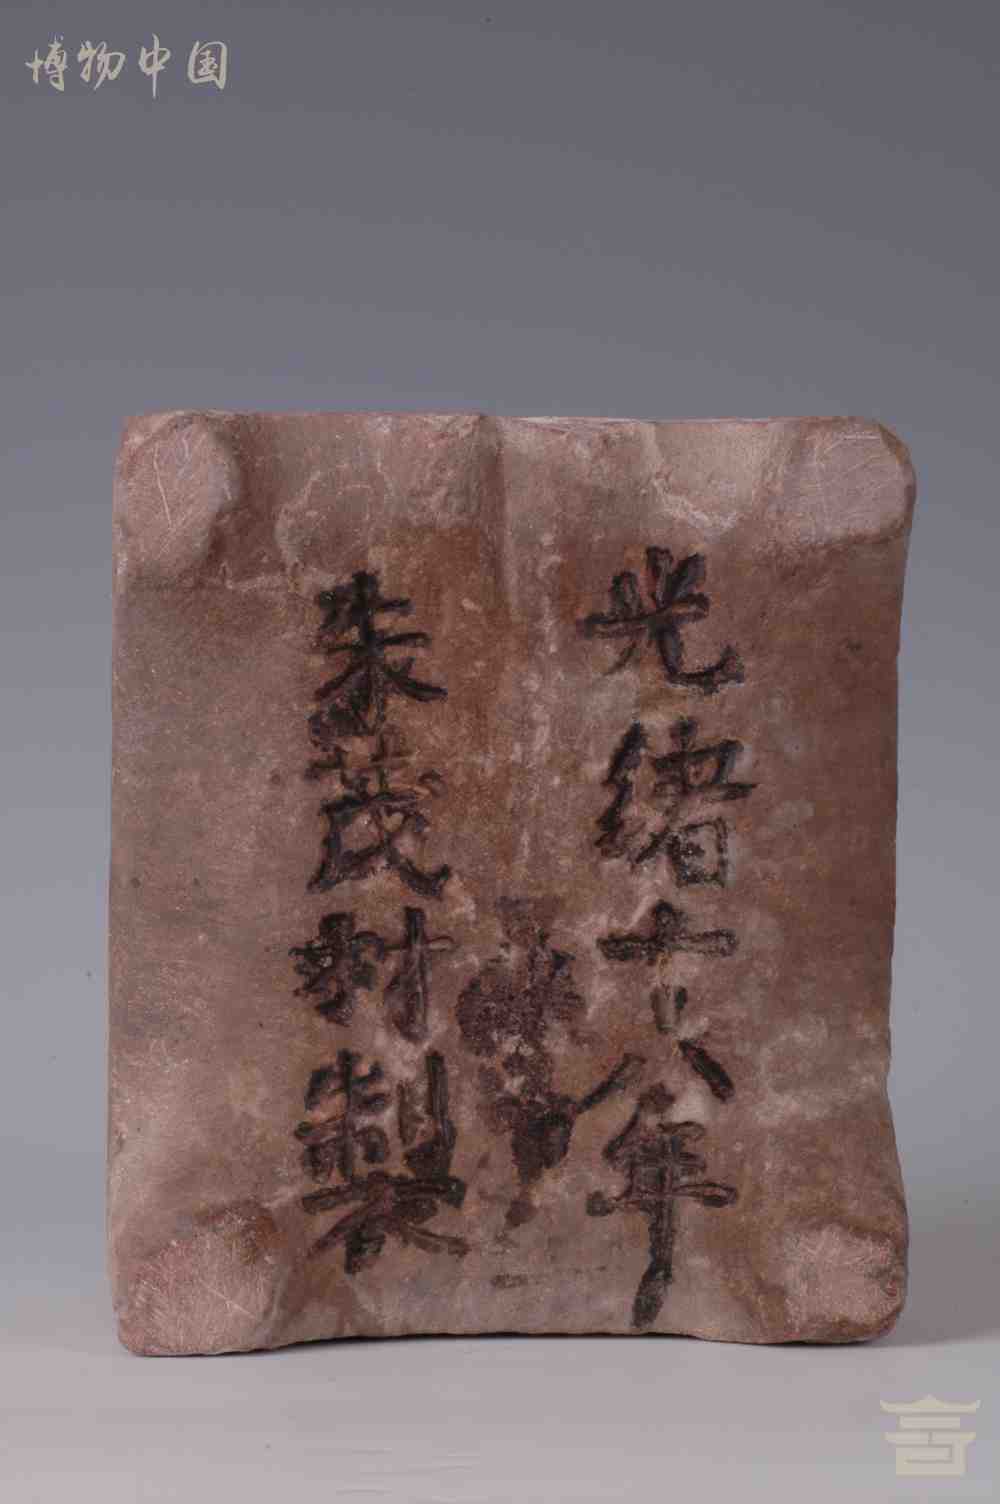 博物中国
光緒十八年
朱茂封製